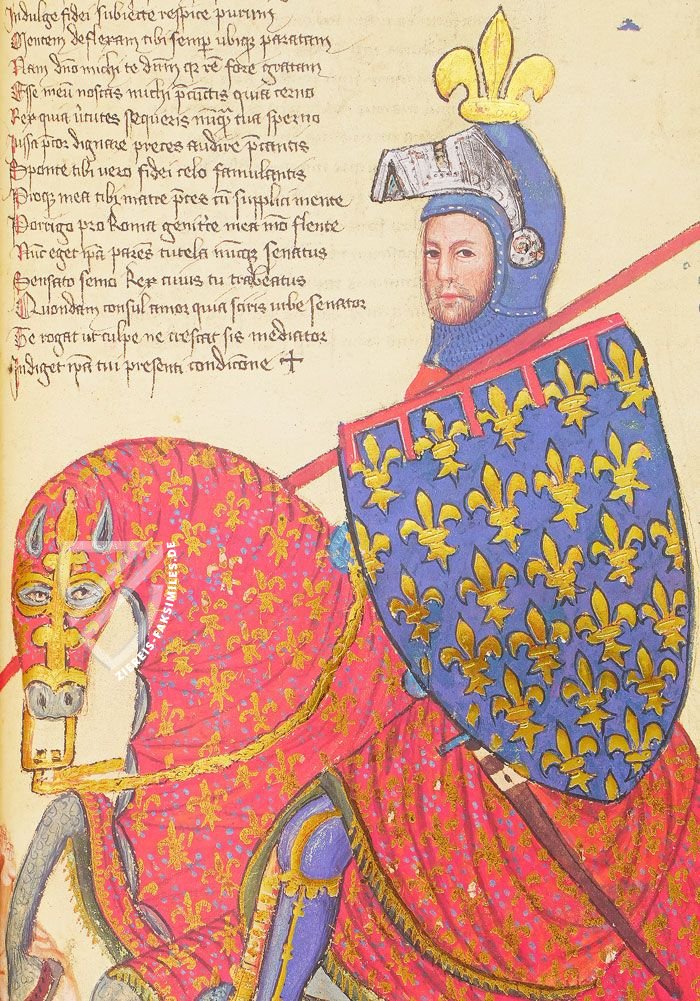 Indulge fidei subiecte respice purim
Mentem deflexam tibi semp ubiq paratam
Nam dno michi te dnm qr rē fore gratam
Esse meū nostas michi pcūctis quia cerno
Rex quia v̉tutes sequeris nūq tua sperno
Jussa pcor dignare preces audire pcantis
Sponte tibi vero fidei celo famulantis
Pioq mea tibi matre pces cū supplici mente
Porrigo pro Roma genit̉ce mea mō flente
Nūc eget ipa parēs tutela nūcq senatus
Sensato semo Rex cuius tu trabeatus
Quondam consul amor quia scitis urbe senator
Te rogat ut culpe ne crescat sis mediator
Indiget ipa tui presenti condicōne +
ZIEREIS-FAKSIMILES.DE